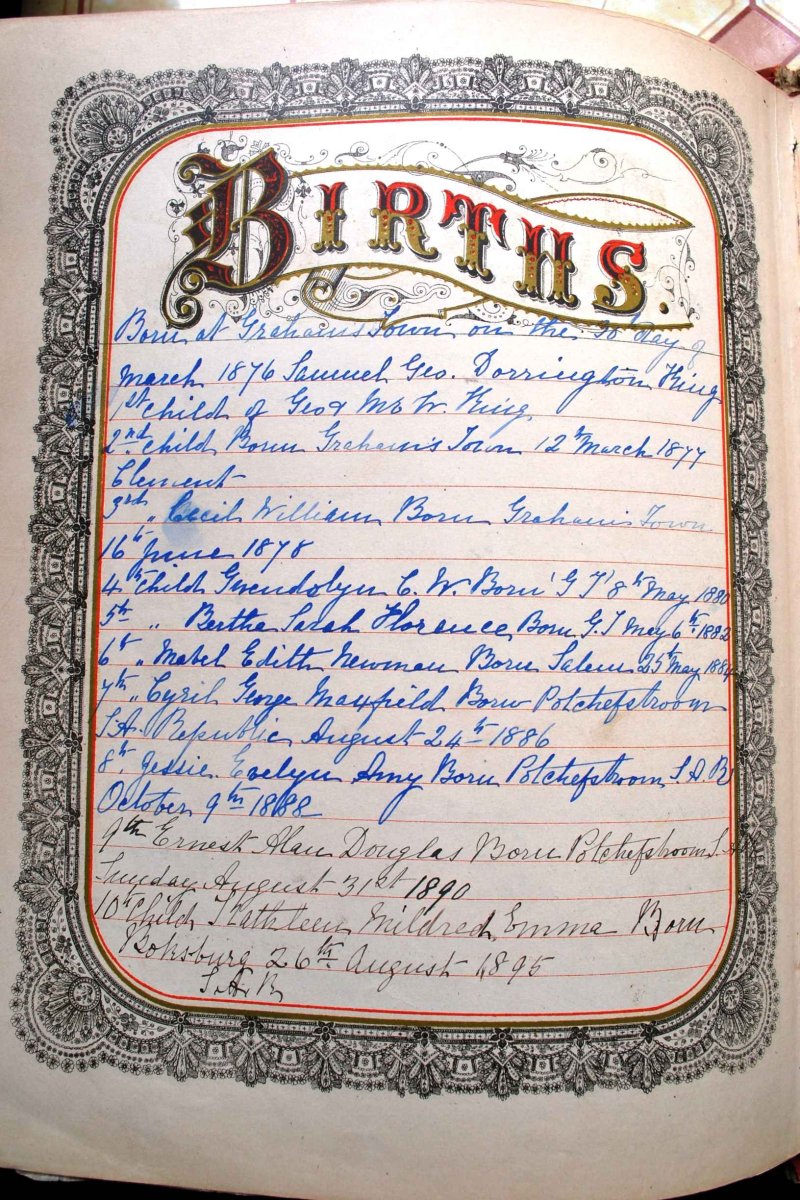 BIRTHS.
Born at Grahams Town on the 30 Day of
March 1876 Samuel Geo. Dorrington King
1st Child of Geo & M W. King
2nd Child Born Graham's Town 12th March 1877
Clement
3rd " Cecil William Born Grahams Town
16th June 1878
4th Child Gwendolyn C. W. Born G T 8th May 1880
5th " Bertha Sarah Florence Born G. T May 6th 1882
6th " Mabel Edith Newman Born Salem 25th May 1884
7th " Cyril George Maxfield Born Potchefstroom
S.A. Republic August 24th 1886
8th Jessie Evelyn Amy Born Potchefstroom S. A. R
October 9th 1888
9th Ernest Alan Douglas Born Potchefstroom S. A
Sunday August 31st 1890
10th Child Kathleen Mildred Emma Born
Boksburg 26th August 1895
S. A. R